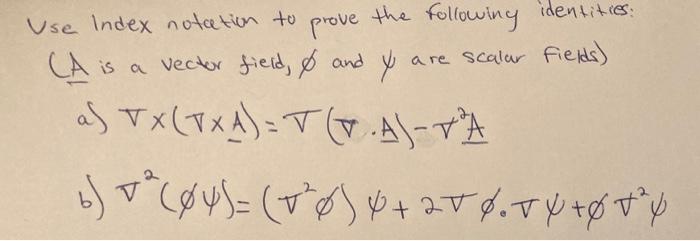 Use Index notation to prove the following identities:
(A is a vector field, ϕ and ψ are scalar fields)
a) ∇×(∇×A)=∇(∇.A)-∇²A
b) ∇²(ϕψ)=(∇²ϕ)ψ+2∇ϕ.∇ψ+ϕ∇²ψ